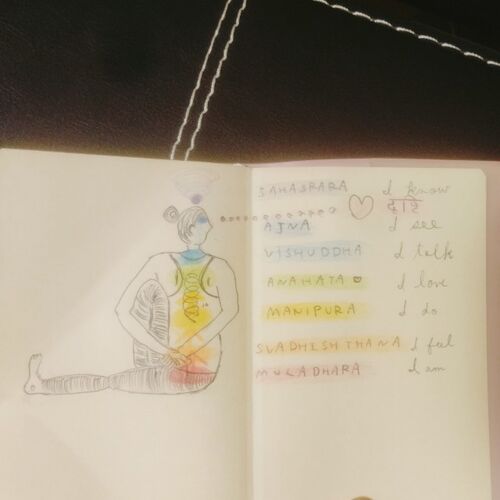 SAHASRARA I know
AJNA I see
VISHUDDHA I talk
ANAHATA I love
MANIPURA I do
SVADHISHTHANA I feel
MULADHARA I am